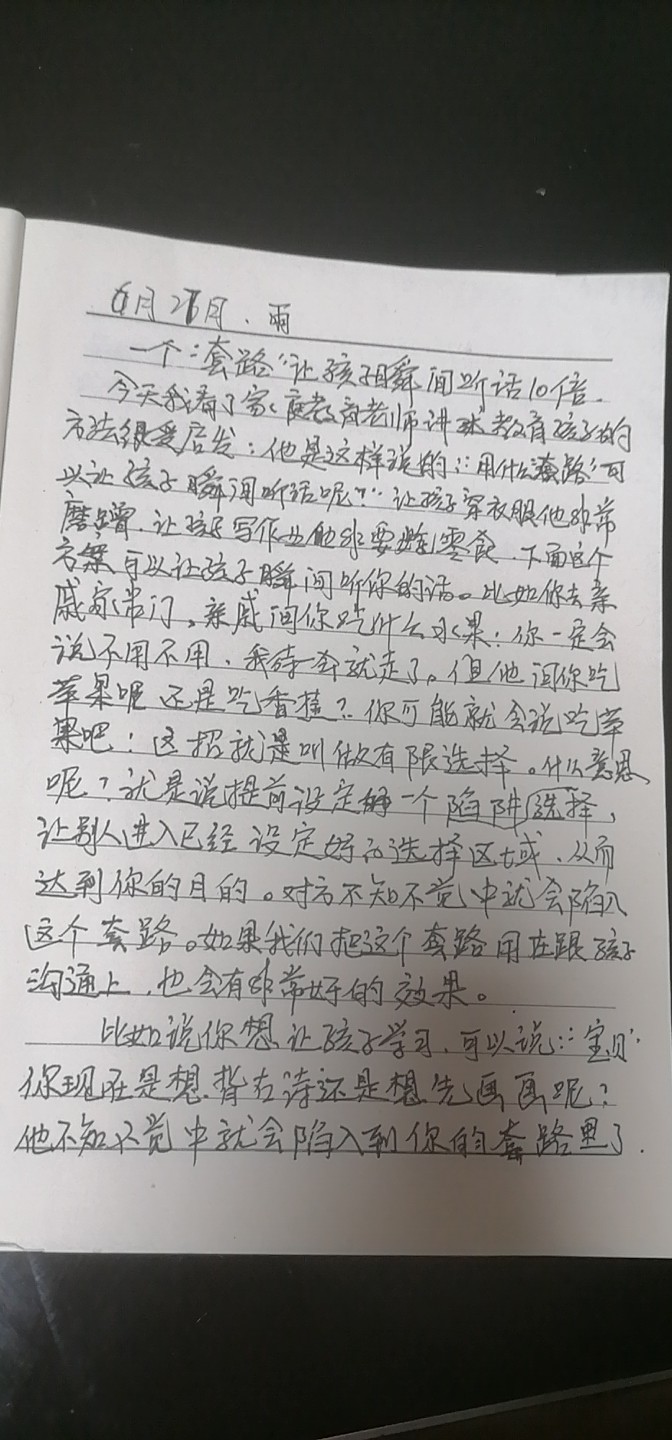 6月26月.雨
一个"套路"让孩子瞬间听话10倍.
今天我看了家庭教育老师讲 教育孩子的
方法很受启发:他是这样说的:"用什么套路"可
以让孩子瞬间听话呢?"让孩子穿衣服他非常
磨蹭.让孩子写作业他非要 零食.下面这个
方案可以让孩子瞬间听你的话。比如你去亲
戚家串门,亲戚问你吃什么水果:你一定会
说不用不用、我待一会就走了。但他问你吃
苹果呢 还是吃香蕉?你可能就会说吃苹
果吧!这招就是叫做有限选择。什么意思
呢?就是说提前设定好一个陷阱选择,
让别人进入已经设定好的选择区域、从而
达到你的目的。对方不知不觉中就会陷入
这个套路。如果我们把这个套路用在跟孩子
沟通上.也会有非常好的效果。
比如说你想让孩子学习.可以说:"宝贝"
你现在是想背古诗还是想先画画呢?
他不知不觉中就会陷入到你的套路里了.